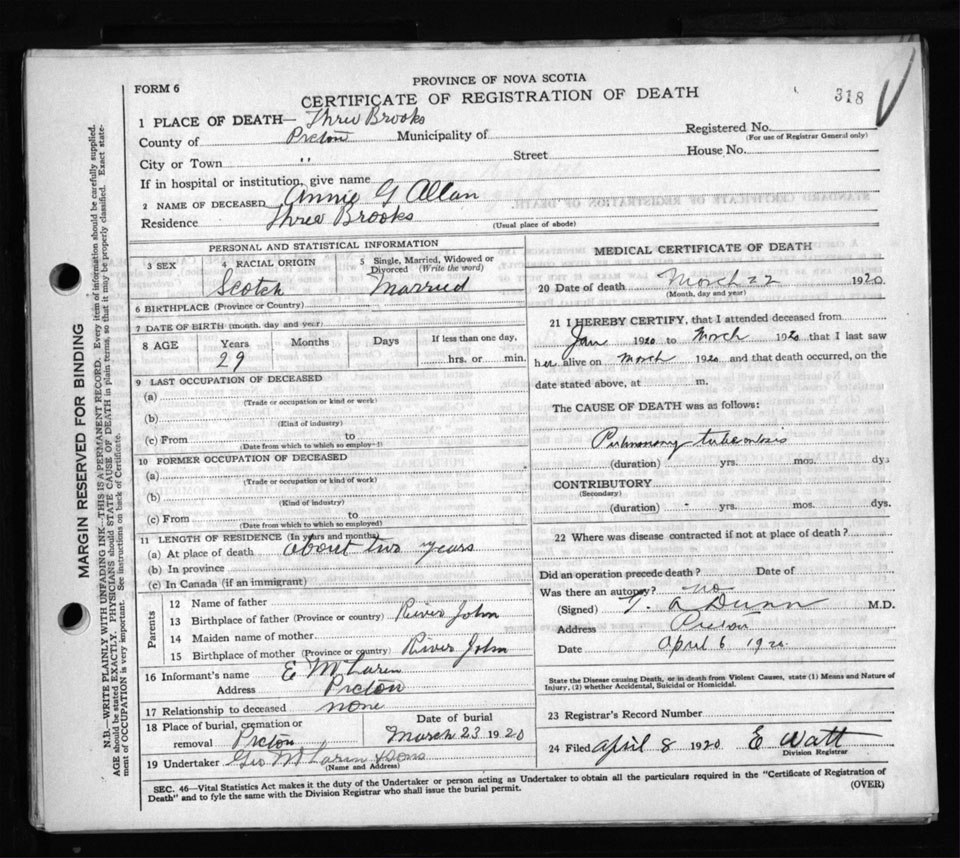 PROVINCE OF NOVA SCOTIA
FORM 6
CERTIFICATE OF REGISTRATION OF DEATH
318
1 PLACE OF DEATH— Three Brooks
County of Pictou Municipality of
Registered No.
(For use of Registrar General only)
City or Town " Street House No.
If in hospital or institution, give name
2 NAME OF DECEASED Annie G Allan
Residence Three Brooks
(Usual place of abode)
PERSONAL AND STATISTICAL INFORMATION
3 SEX
4 RACIAL ORIGIN
Scotch
5 Single, Married, Widowed or
Divorced (Write the word)
Married
6 BIRTHPLACE (Province or Country)
7 DATE OF BIRTH (month, day and year)
8 AGE Years Months Days If less than one day,
29 hrs. or min.
9 LAST OCCUPATION OF DECEASED
(a)
(Trade or occupation or kind or work)
(b)
(Kind of industry)
(c) From to
(Date from which to which so employ
10 FORMER OCCUPATION OF DECEASED
(a)
(Trade or occupation or kind of work)
(b)
(Kind of industry)
(c) From to
(Date from which to which so employed)
11 LENGTH OF RESIDENCE (In years and months)
(a) At place of death about two years
(b) In province
(c) In Canada (if an immigrant)
Parents
12 Name of father
13 Birthplace of father (Province or country) River John
14 Maiden name of mother
15 Birthplace of mother (Province or country) River John
16 Informant's name E McLaren
Address Pictou
17 Relationship to deceased none
18 Place of burial, cremation or
removal Pictou
Date of burial
March 23 1920
19 Undertaker Geo McLaren & Sons
(Name and Address)
MEDICAL CERTIFICATE OF DEATH
20 Date of death March 22 1920
(Month, day and year)
21 I HEREBY CERTIFY, that I attended deceased from
Jan 1920 to March 1920 that I last saw
her alive on March 1920 and that death occurred, on the
date stated above, at m.
The CAUSE OF DEATH was as follows:
Pulmonary tuberculosis
(duration) yrs. mos. dys
CONTRIBUTORY
(Secondary)
(duration) yrs. mos. dys.
22 Where was disease contracted if not at place of death?
Did an operation precede death? Date of
Was there an autopsy? no
(Signed) A Dunn M.D.
Address Pictou
Date April 6 1920
State the Disease causing Death, or in death from Violent Causes, state (1) Means and Nature of
Injury, (2) whether Accidental, Suicidal or Homicidal.
23 Registrar's Record Number
24 Filed April 8 1920 E Watt
Division Registrar
SEC. 46—Vital Statistics Act makes it the duty of the Undertaker or person acting as Undertaker to obtain all the particulars required in the "Certificate of Registration of
Death" and to fyle the same with the Division Registrar who shall issue the burial permit.
(OVER)
MARGIN RESERVED FOR BINDING
N.B.—WRITE PLAINLY WITH UNFADING INK—THIS IS A PERMANENT RECORD. Every item of information should be carefully supplied.
AGE should be stated EXACTLY. PHYSICIANS should STATE CAUSE OF DEATH in plain terms, so that it may be properly classified. Exact state-
ment of OCCUPATION is very important. See instructions on back of Certificate.